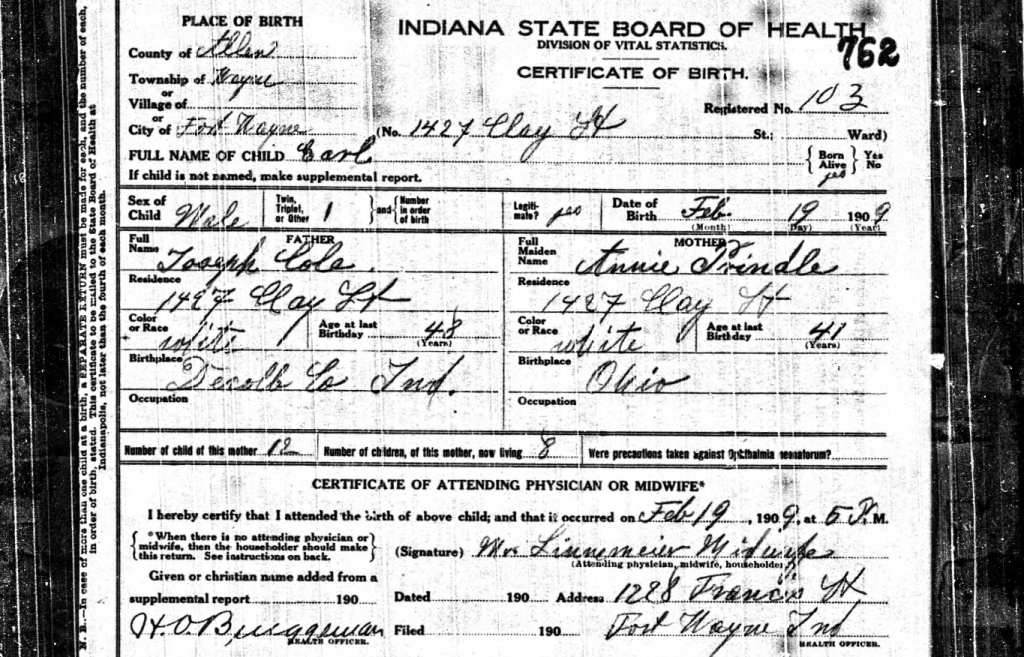 N. B.—In case of more than one child at a birth, a SEPARATE RETURN must be made for each, and the number of each,
in order of birth, stated. This certificate to be mailed to the State Board of Health at
Indianapolis, not later than the fourth of each month.
PLACE OF BIRTH
INDIANA STATE BOARD OF HEALTH
DIVISION OF VITAL STATISTICS.
762
County of Allen
CERTIFICATE OF BIRTH.
Township of Wayne
or
Village of
Registered No. 103
or
City of Fort Wayne (No. 1427 Clay St St.; Ward)
FULL NAME OF CHILD Earl { Born Alive } Yes No yes
If child is not named, make supplemental report.
Sex of Child Male Twin, Triplet, or Other 1 and { Number in order of birth Legiti-mate? yes Date of Birth Feb. 19 1909
(Month) (Day) (Year)
FATHER MOTHER
Full Name Joseph Cole. Full Maiden Name Annie Trindle
Residence Residence
1427 Clay St 1427 Clay St
Color or Race white Age at last Birthday 48 (Years) Color or Race white Age at last Birthday 41 (Years)
Birthplace Decolb Co Ind. Birthplace Ohio
Occupation Occupation
Number of child of this mother 12 Number of children, of this mother, now living 8 Were precautions taken against Ophthalmia neonatorum?
CERTIFICATE OF ATTENDING PHYSICIAN OR MIDWIFE*
I hereby certify that I attended the birth of above child; and that it occurred on Feb 19, 1909, at 5 P. M.
{ *When there is no attending physician or midwife, then the householder should make this return. See instructions on back. }
(Signature) Mrs Linnemeier Midwife
(Attending physician, midwife, householder)
Given or christian name added from a
supplemental report 190 Dated 190 Address 1228 Francis St
H. O. Bruggeman Filed 190 Fort Wayne Ind
HEALTH OFFICER. HEALTH OFFICER.